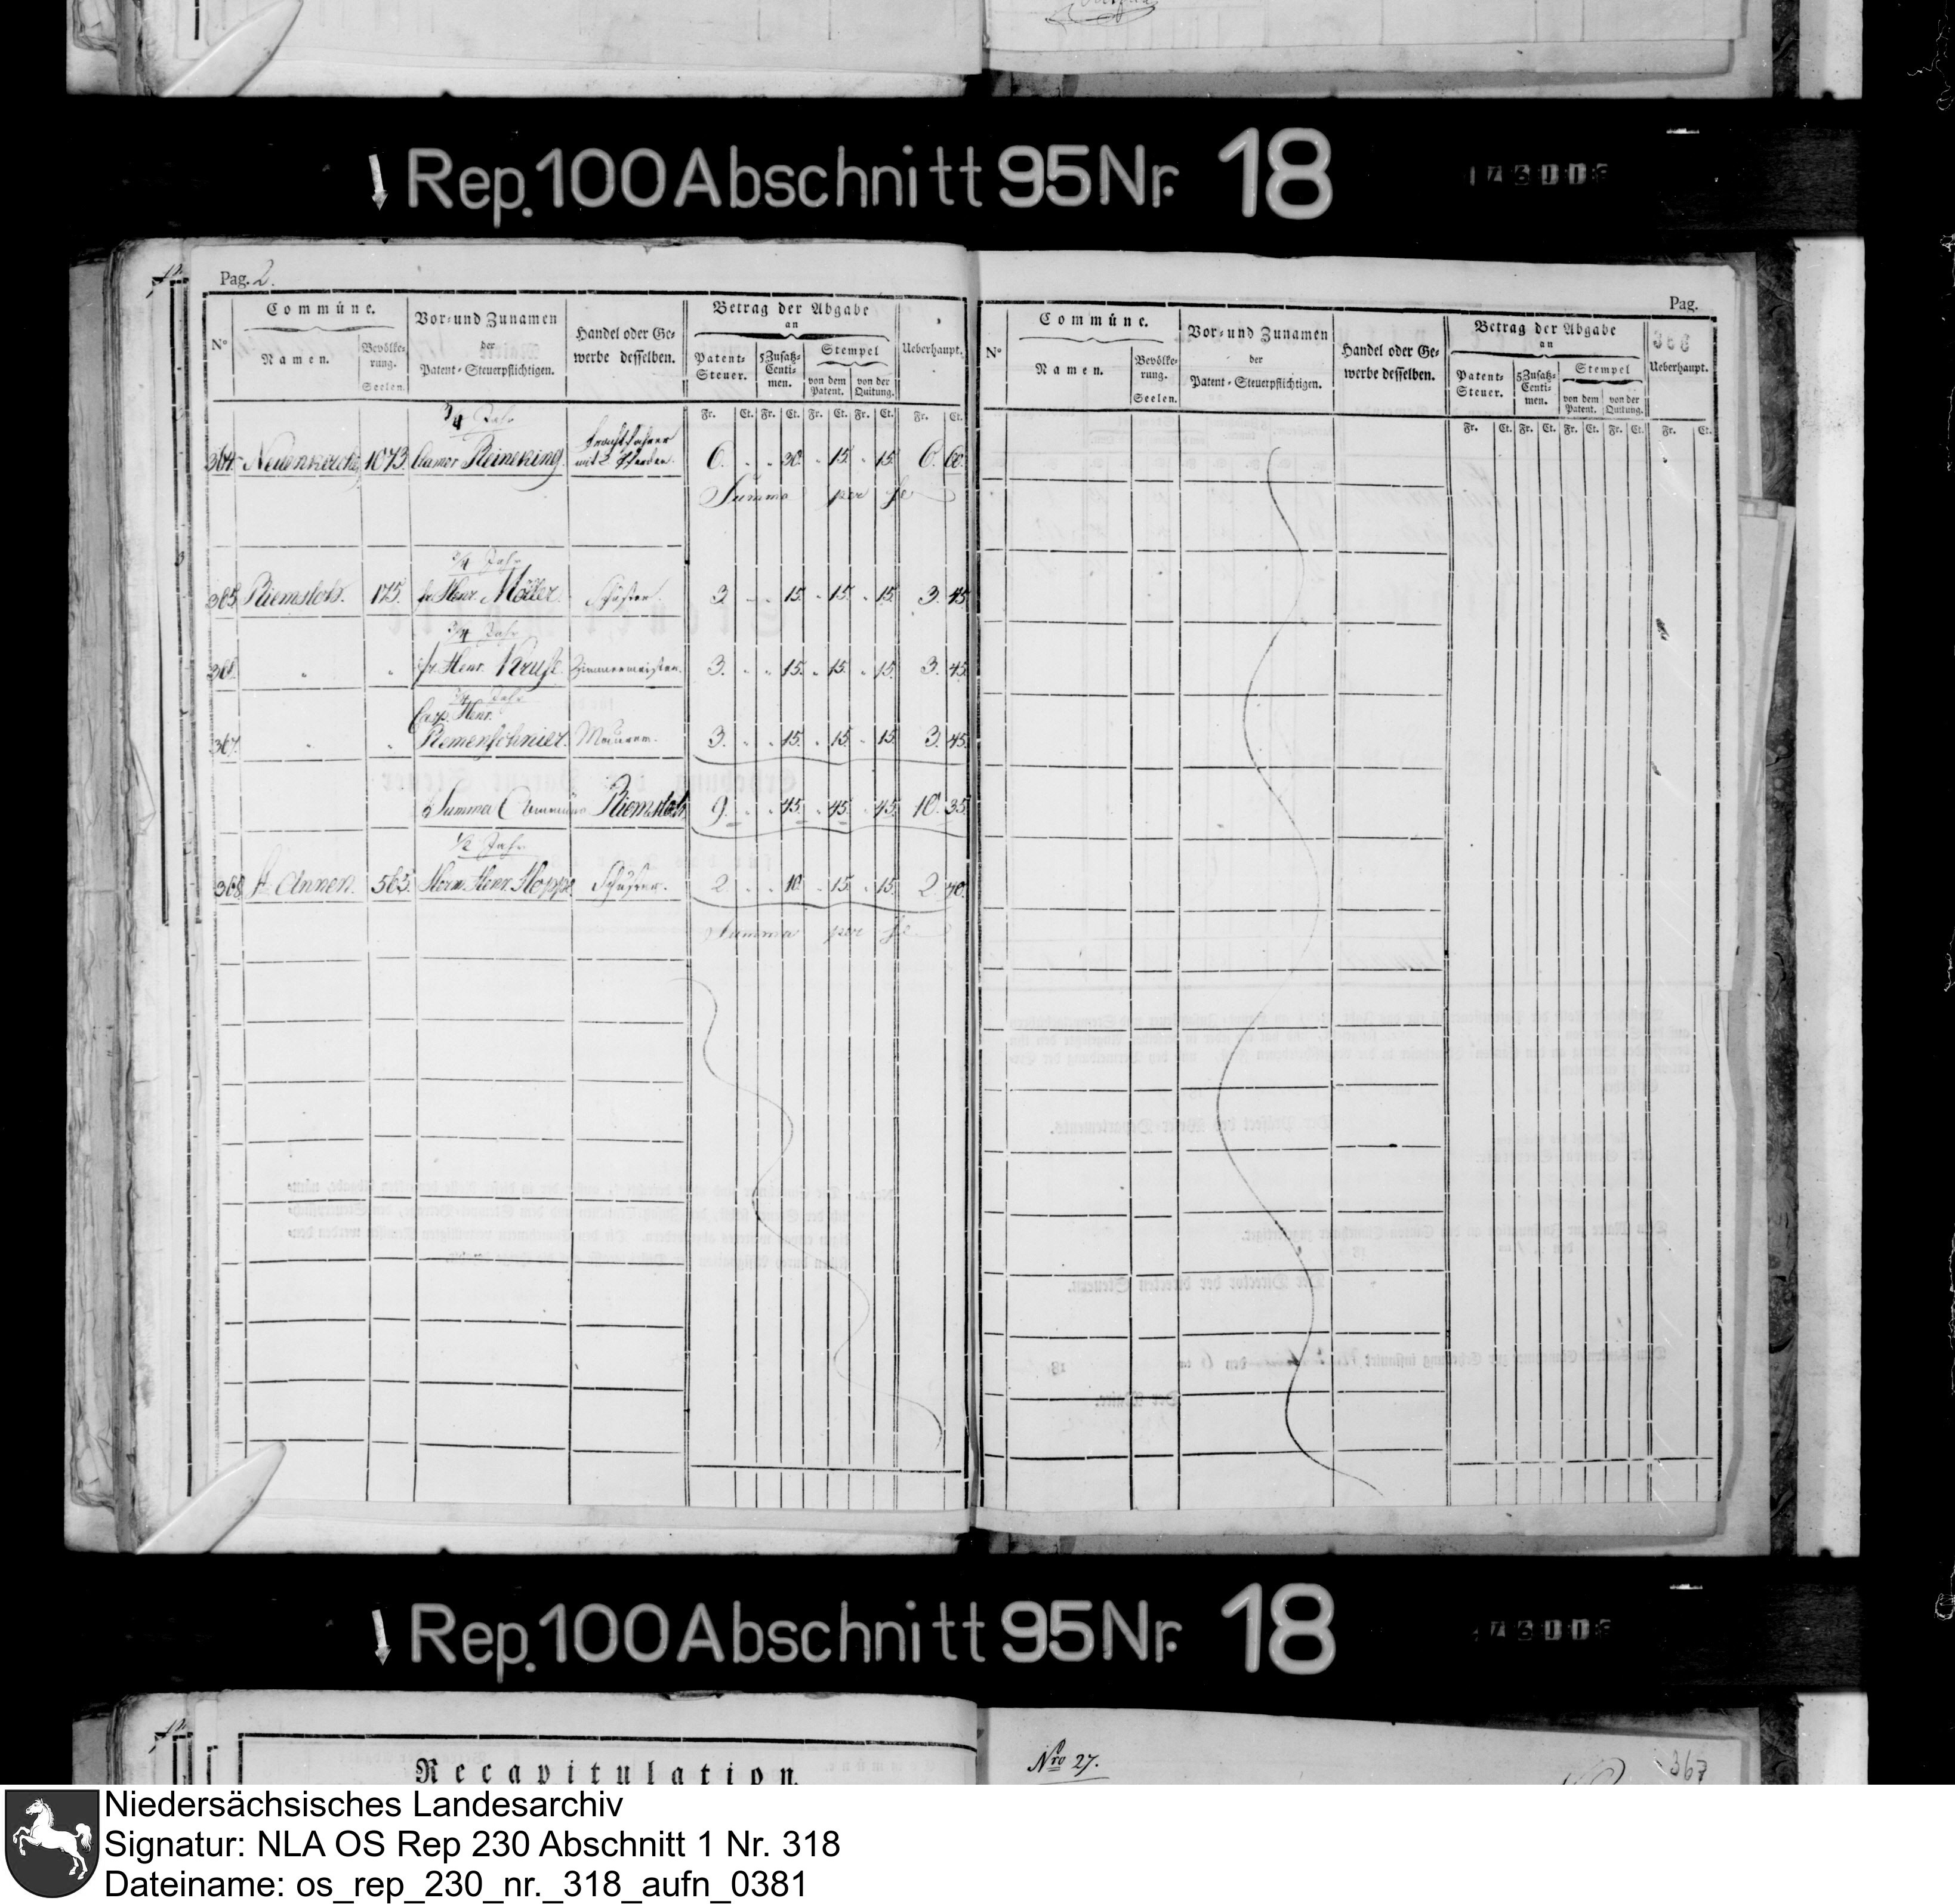 ↓ Rep. 100 Abschnitt 95 Nr. 18
Pag. 2.
N° Commüne. Vor- und Zunamen der Patent-Steuerpflichtigen. Handel oder Gewerbe desselben. Betrag der Abgabe an Ueberhaupt.
Namen. Bevölkerung. Seelen. Patent-Steuer. 5 Zusatz-Centimen. Stempel von dem Patent. von der Quitung.
Fr. Ct. Fr. Ct. Fr. Ct. Fr. Ct. Fr. Ct.
3/4 Jahr
364. Neuenkirchen 1073. Reineking. Frachtfahrer mit 2 Pferden. 6. . . 30. . 15. . 15. 6. 60.
Summa per se
3/4 Jahr
365. Riemsloh. 175. fr. Henr. Möller. Schuster. 3. . . 15. . 15. . 15. 3. 45.
3/4 Jahr
366. " " fr. Henr. Kruse. Zimmermeister. 3. . . 15. . 15. . 15. 3. 45.
3/4 Jahr
Casp. Henr.
367. " " Remenschnier. Maurer. 3. . . 15. . 15. . 15. 3. 45.
Summa Commüne Riemsloh 9. . . 45. . 45. . 45. 10. 35.
1/2 Jahr
368. St. Annen. 565. Herm. Henr. Hoppe Schuster. 2 . . 10. . 15. . 15. 2. 40.
Summa per se
Pag.
368
N° Commüne. Vor- und Zunamen der Patent-Steuerpflichtigen. Handel oder Gewerbe desselben. Betrag der Abgabe an Ueberhaupt.
Namen. Bevölkerung. Seelen. Patent-Steuer. 5 Zusatz-Centimen. Stempel von dem Patent. von der Quitung.
Fr. Ct. Fr. Ct. Fr. Ct. Fr. Ct. Fr. Ct.
↓ Rep. 100 Abschnitt 95 Nr. 18
Recapitulation.
Nro 27.
367
Niedersächsisches Landesarchiv
Signatur: NLA OS Rep 230 Abschnitt 1 Nr. 318
Dateiname: os_rep_230_nr._318_aufn_0381